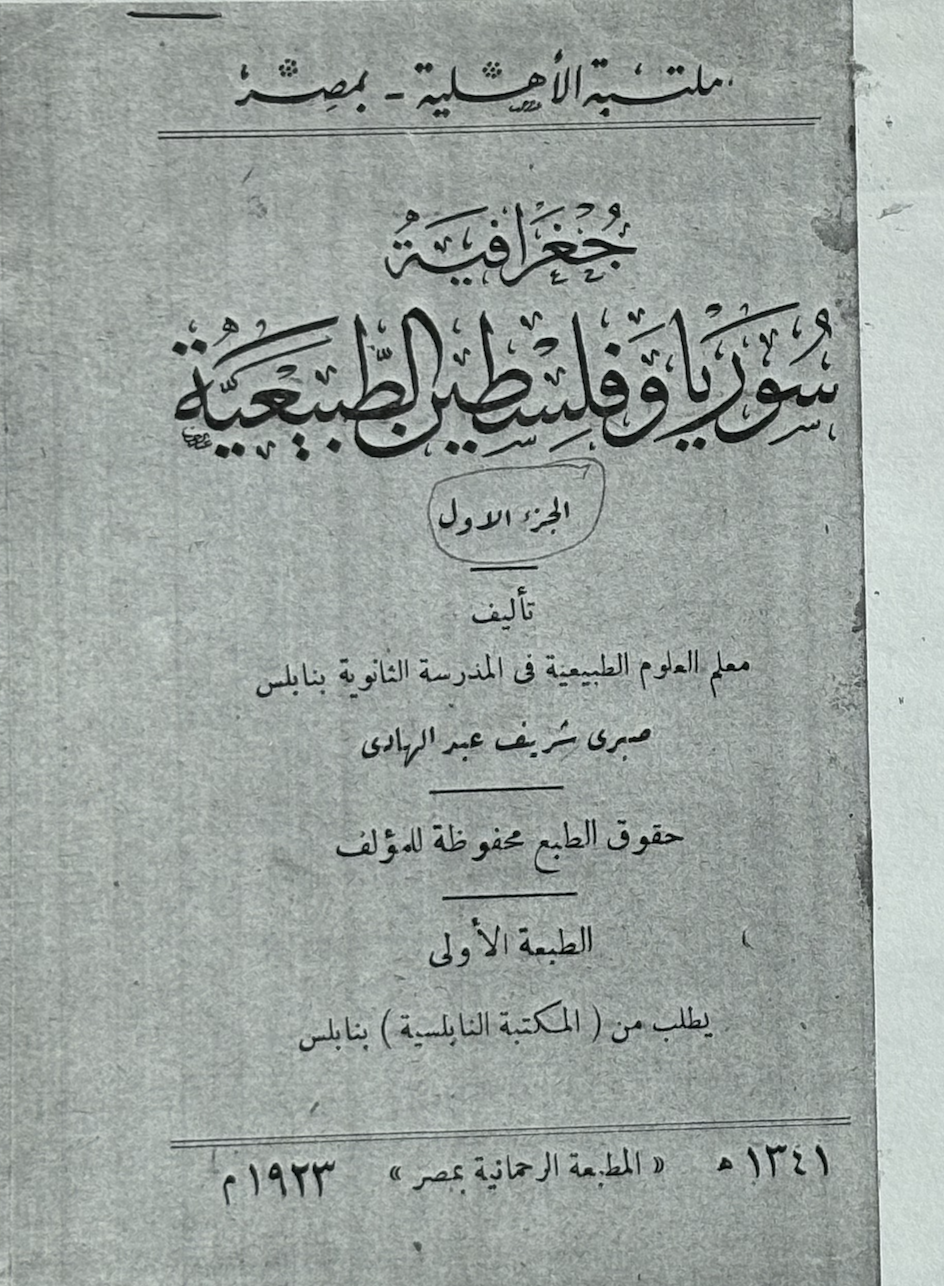 مكتبة الأهلية - بمصر
جُغْرَافيَةُ
سُورَيا وَفلِسْطين الطَّبيعَيَّةُ
الجزء الاول
تأليف
معلم العلوم الطبيعية فى المدرسة الثانوية بنابلس
صبرى شريف عبد الهادى
حقوق الطبع محفوظة للمؤلف
الطبعة الأولى
يطلب من ( المكتبة النابلسية ) بنابلس
١٣٤١ ه « المطبعة الرحمانية بمصر » ١٩٢٣ م